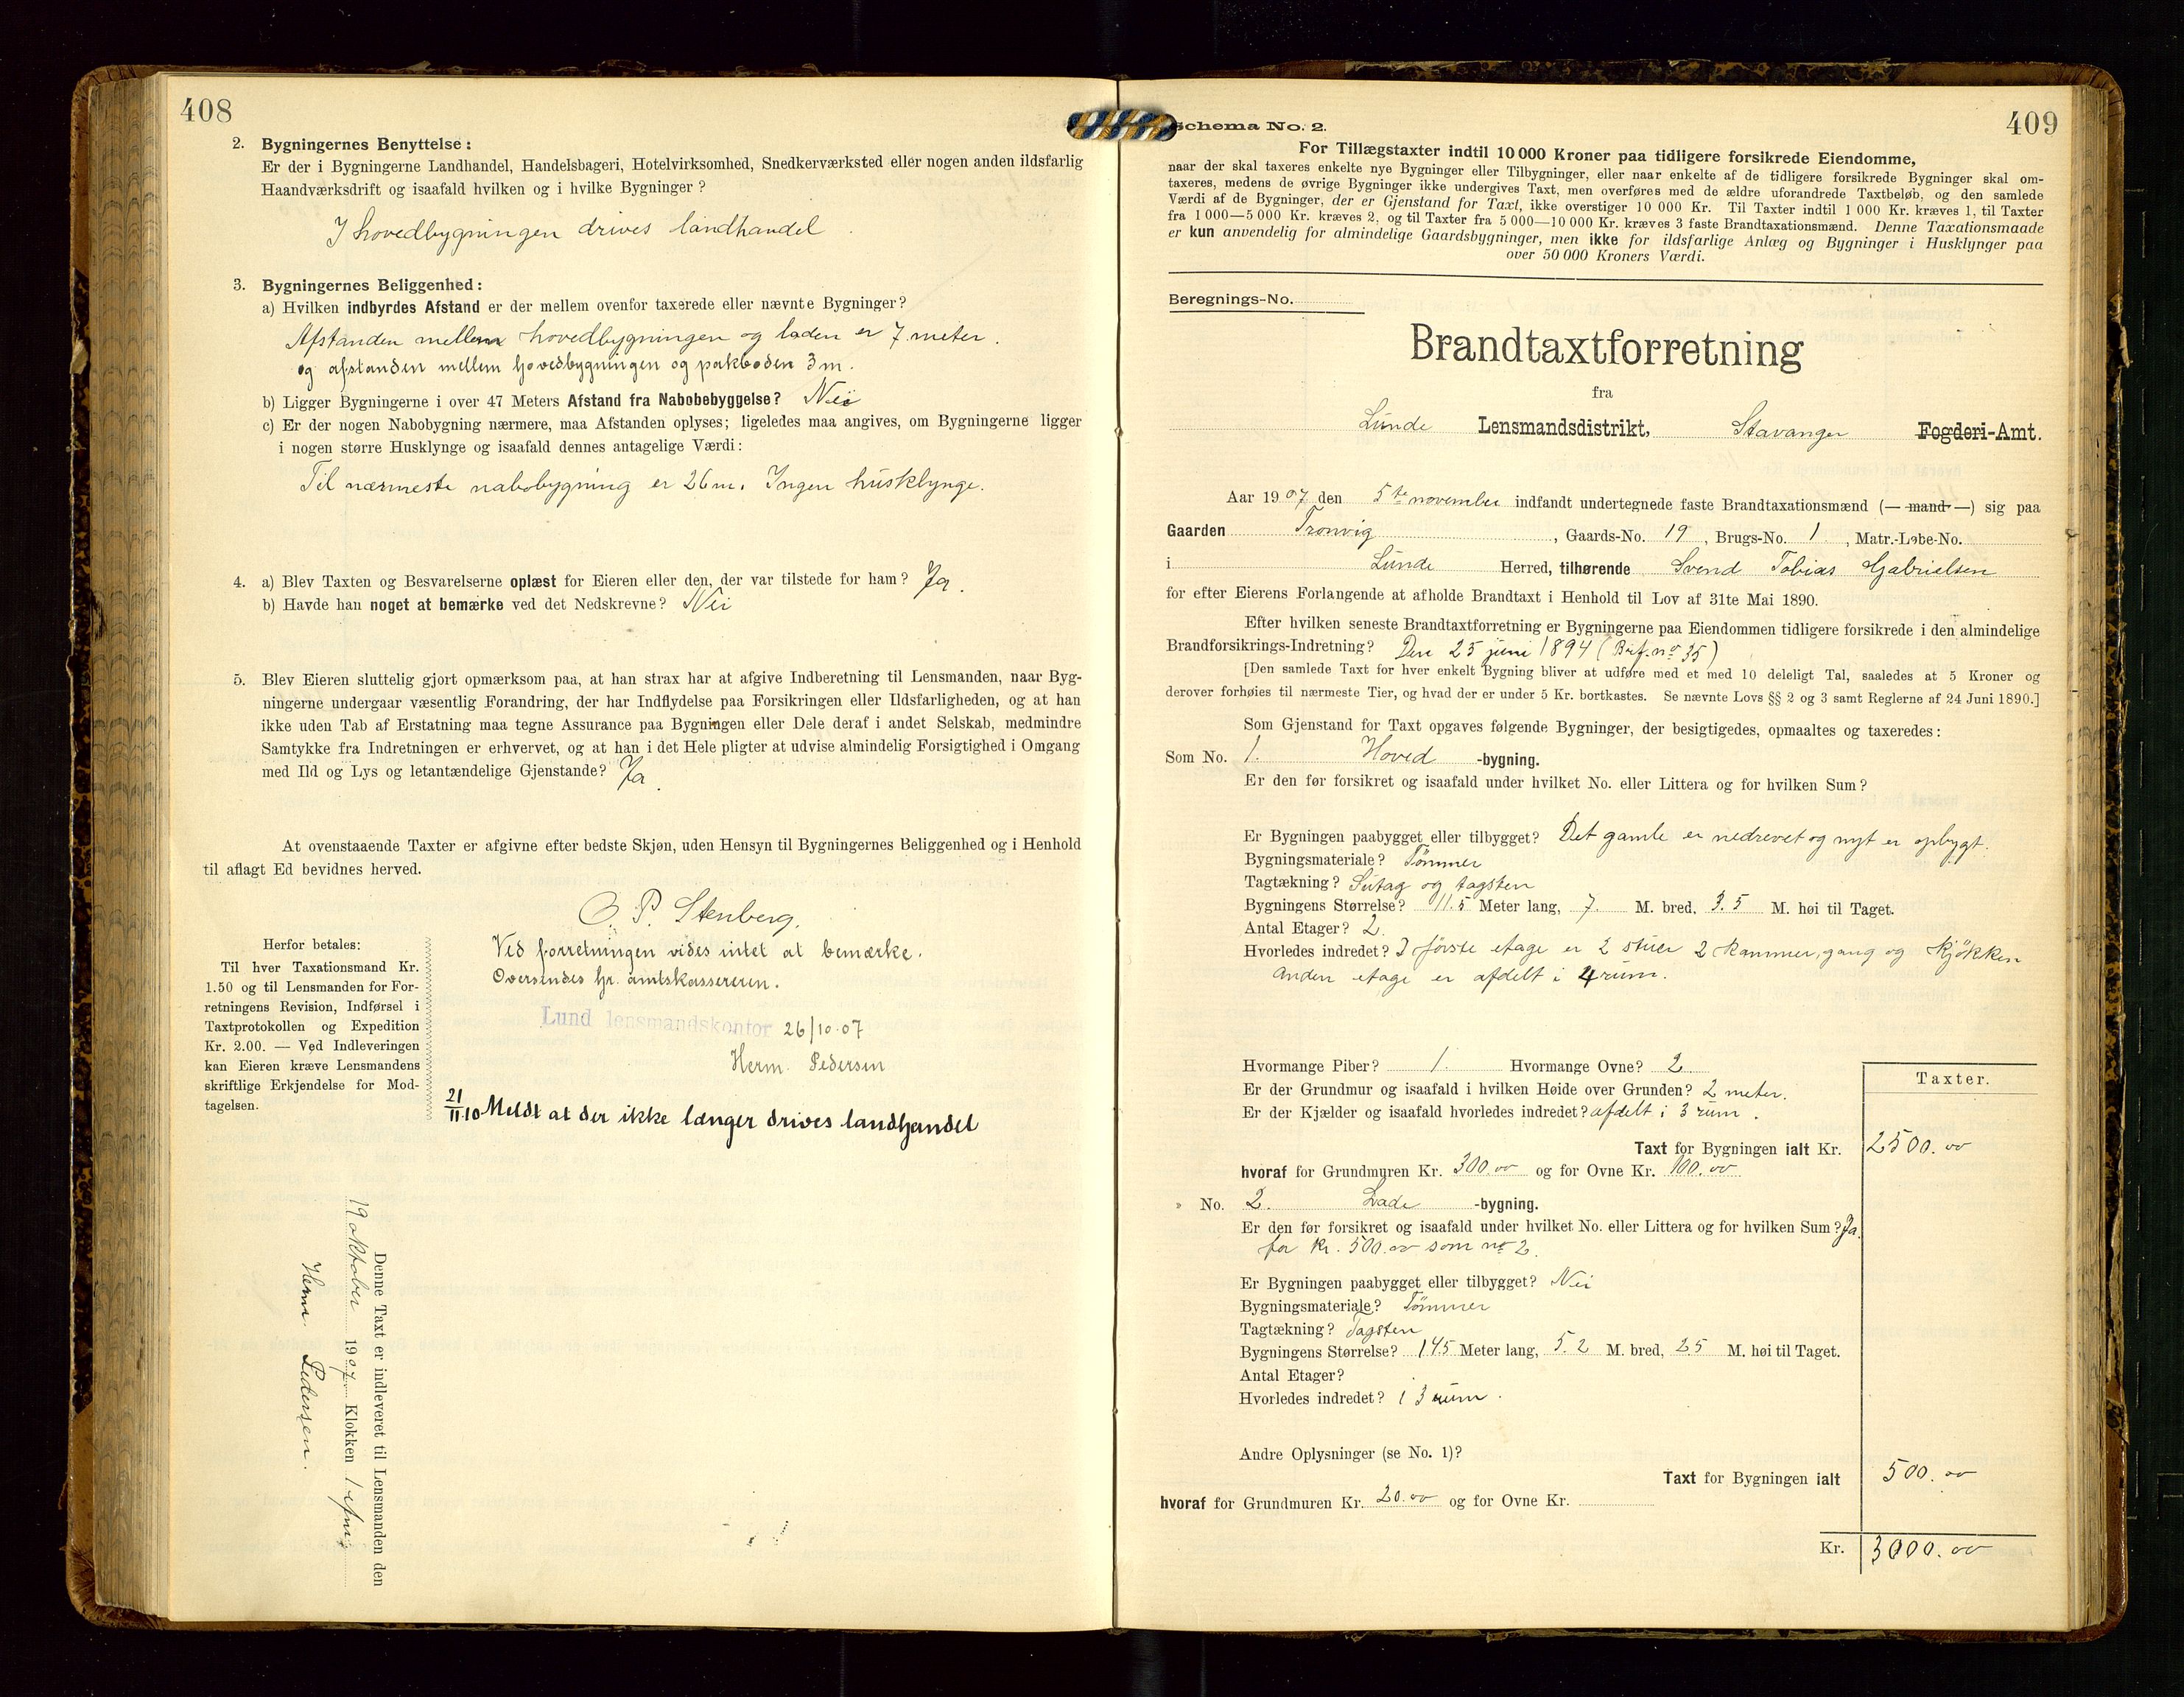 408
2. Bygningernes Benyttelse:
Er der i Bygningerne Landhandel, Handelsbageri, Hotelvirksomhed, Snedkerværksted eller nogen anden ildsfarlig
Haandværksdrift og isaafald hvilken og i hvilke Bygninger?
I hovedbygningen drives landhandel
3. Bygningernes Beliggenhed:
a) Hvilken indbyrdes Afstand er der mellem ovenfor taxerede eller nævnte Bygninger?
Afstanden mellem hovedbygningen og laden er 7 meter.
og afstanden mellem hovedbygningen og pakboden 3 m.
b) Ligger Bygningerne i over 47 Meters Afstand fra Nabobebyggelse? Nei
c) Er der nogen Nabobygning nærmere, maa Afstanden oplyses; ligeledes maa angives, om Bygningerne ligger
i nogen større Husklynge og isaafald dennes antagelige Værdi:
Til nærmeste nabobygning er 26 m. Ingen husklynge.
4. a) Blev Taxten og Besvarelserne oplæst for Eieren eller den, der var tilstede for ham? Ja.
b) Havde han noget at bemærke ved det Nedskrevne? Nei
5. Blev Eieren sluttelig gjort opmærksom paa, at han strax har at afgive Indberetning til Lensmanden, naar Byg-
ningerne undergaar væsentlig Forandring, der har Indflydelse paa Forsikringen eller Ildsfarligheden, og at han
ikke uden Tab af Erstatning maa tegne Assurance paa Bygningen eller Dele deraf i andet Selskab, medmindre
Samtykke fra Indretningen er erhvervet, og at han i det Hele pligter at udvise almindelig Forsigtighed i Omgang
med Ild og Lys og letantændelige Gjenstande? Ja.
At ovenstaaende Taxter er afgivne efter bedste Skjøn, uden Hensyn til Bygningernes Beliggenhed og i Henhold
til aflagt Ed bevidnes herved.
O. P. Stenberg.
Ved forretningen vides intet at bemærke.
Oversendes hr. amtskassereren.
Lund lensmandskontor 26/10 07
Herm. Pedersen
21/11.10 Meldt at der ikke længer drives landhandel
Herfor betales:
Til hver Taxationsmand Kr.
1.50 og til Lensmanden for For-
retningens Revision, Indførsel i
Taxtprotokollen og Expedition
Kr. 2.00. — Ved Indleveringen
kan Eieren kræve Lensmandens
skriftlige Erkjendelse for Mod-
tagelsen.
Denne Taxt er indleveret til Lensmanden den
19 oktober 1907 Klokken 1
Herm. Pedersen.
409
Schema No. 2.
For Tillægstaxter indtil 10 000 Kroner paa tidligere forsikrede Eiendomme,
naar der skal taxeres enkelte nye Bygninger eller Tilbygninger, eller naar enkelte af de tidligere forsikrede Bygninger skal om-
taxeres, medens de øvrige Bygninger ikke undergives Taxt, men overføres med de ældre uforandrede Taxtbeløb, og den samlede
Værdi af de Bygninger, der er Gjenstand for Taxt, ikke overstiger 10 000 Kr. Til Taxter indtil 1 000 Kr. kræves 1, til Taxter
fra 1 000—5 000 Kr. kræves 2, og til Taxter fra 5 000—10 000 Kr. kræves 3 faste Brandtaxationsmænd. Denne Taxationsmaade
er kun anvendelig for almindelige Gaardsbygninger, men ikke for ildsfarlige Anlæg og Bygninger i Husklynger paa
over 50 000 Kroners Værdi.
Beregnings-No.
Brandtaxtforretning
fra
Lunde Lensmandsdistrikt, Stavanger Fogderi-Amt.
Aar 1907 den 5te november indfandt undertegnede faste Brandtaxationsmænd (— mand —) sig paa
Gaarden Tronvig, Gaards-No. 19, Brugs-No. 1, Matr.-Løbe-No.
i Lunde Herred, tilhørende Svend Tobias Gabrielsen
for efter Eierens Forlangende at afholde Brandtaxt i Henhold til Lov af 31te Mai 1890.
Efter hvilken seneste Brandtaxtforretning er Bygningerne paa Eiendommen tidligere forsikrede i den almindelige
Brandforsikrings-Indretning? Den 25 juni 1894 (no 35)
[Den samlede Taxt for hver enkelt Bygning bliver at udføre med et med 10 deleligt Tal, saaledes at 5 Kroner og
derover forhøies til nærmeste Tier, og hvad der er under 5 Kr. bortkastes. Se nævnte Lovs §§ 2 og 3 samt Reglerne af 24 Juni 1890.]
Som Gjenstand for Taxt opgaves følgende Bygninger, der besigtigedes, opmaaltes og taxeredes:
Som No. 1. Hoved -bygning.
Er den før forsikret og isaafald under hvilket No. eller Littera og for hvilken Sum?
Er Bygningen paabygget eller tilbygget? Det gamle er nedrevet og nyt er opbygt.
Bygningsmateriale? Tømmer
Tagtækning? Sutag og tagsten
Bygningens Størrelse? 11.5 Meter lang, 7. M. bred, 3.5 M. høi til Taget.
Antal Etager? 2.
Hvorledes indredet? I første etage er 2 stuer 2 kammer, gang og kjøkken
anden etage er afdelt i 4 rum.
Hvormange Piber? 1. Hvormange Ovne? 2
Er der Grundmur og isaafald i hvilken Høide over Grunden? 2 meter.
Er der Kjælder og isaafald hvorledes indredet? afdelt i 3 rum.
Taxter.
Taxt for Bygningen ialt Kr. 2500.00
hvoraf for Grundmuren Kr. 300.00 og for Ovne Kr. 100.00
» No. 2. Lade -bygning.
Er den før forsikret og isaafald under hvilket No. eller Littera og for hvilken Sum? Ja.
for kr. 500.00 som no 2.
Er Bygningen paabygget eller tilbygget? Nei
Bygningsmateriale? Tømmer
Tagtækning? Tagsten
Bygningens Størrelse? 14.5 Meter lang, 5.2 M. bred, 2.5 M. høi til Taget.
Antal Etager?
Hvorledes indredet? i 3 rum.
Andre Oplysninger (se No. 1)?
Taxt for Bygningen ialt 500.00
hvoraf for Grundmuren Kr. 20.00 og for Ovne Kr.
Kr. 3000.00